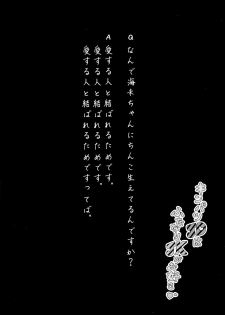 Qなんで海未ちゃんにちんこ生えてるんですか？
A愛する人と結ばれるためです。
愛する人と結ばれるためです。
愛する人と結ばれるためですってば。